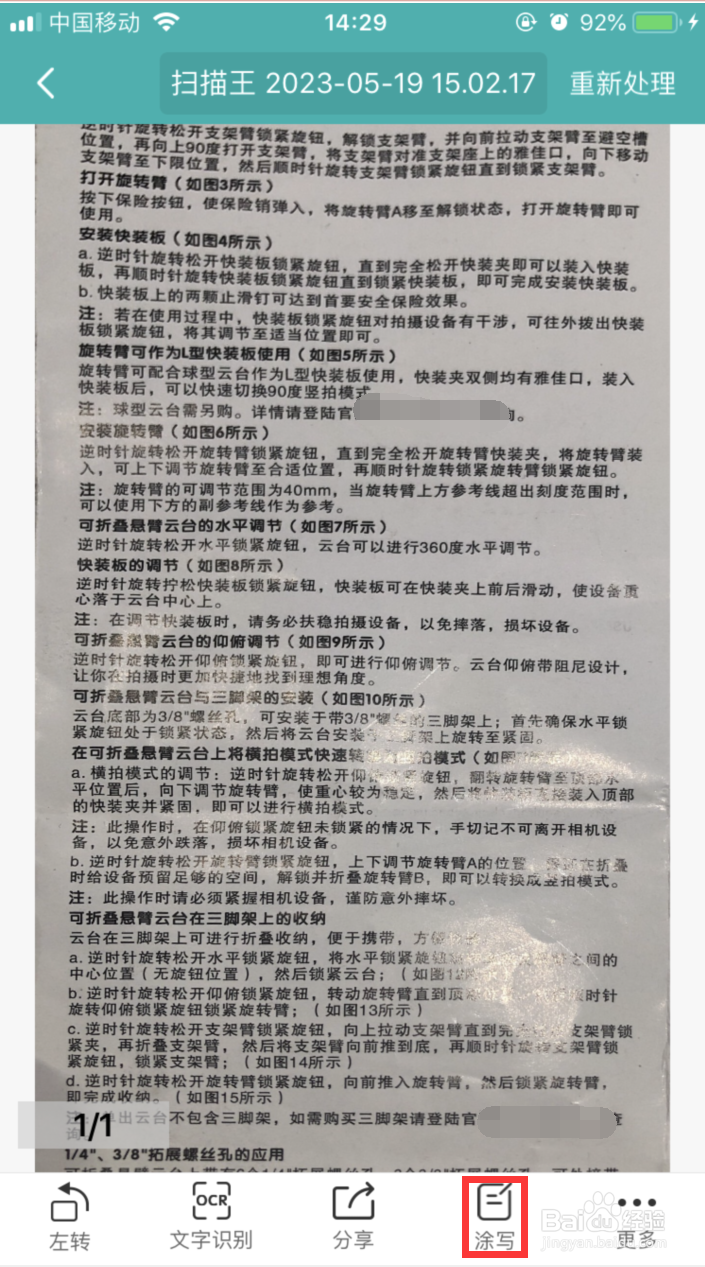 中国移动 14:29 92%
扫描王 2023-05-19 15.02.17 重新处理
逆时针旋转松开支架臂锁紧旋钮，解锁支架臂，并向前拉动支架臂至避空槽
位置，再向上90度打开支架臂，将支架臂对准支架座上的雅佳口，向下移动
支架臂至下限位置，然后顺时针旋转支架臂锁紧旋钮直到锁紧支架臂。
打开旋转臂（如图3所示）
按下保险按钮，使保险销弹入，将旋转臂A移至解锁状态，打开旋转臂即可
使用。
安装快装板（如图4所示）
a. 逆时针旋转松开快装板锁紧旋钮，直到完全松开快装夹即可以装入快装
板，再顺时针旋转快装板锁紧旋钮直到锁紧快装板，即可完成安装快装板。
b. 快装板上的两颗止滑钉可达到首要安全保险效果。
注：若在使用过程中，快装板锁紧旋钮对拍摄设备有干涉，可往外拨出快装
板锁紧旋钮，将其调节至适当位置即可。
旋转臂可作为L型快装板使用（如图5所示）
旋转臂可配合球型云台作为L型快装板使用，快装夹双侧均有雅佳口，装入
快装板后，可以快速切换90度竖拍模式
注：球型云台需另购。详情请登陆官 。
安装旋转臂（如图6所示）
逆时针旋转松开旋转臂锁紧旋钮，直到完全松开旋转臂快装夹，将旋转臂装
入，可上下调节旋转臂至合适位置，再顺时针旋转锁紧旋转臂锁紧旋钮。
注：旋转臂的可调节范围为40mm，当旋转臂上方参考线超出刻度范围时，
可以使用下方的副参考线作为参考。
可折叠悬臂云台的水平调节（如图7所示）
逆时针旋转松开水平锁紧旋钮，云台可以进行360度水平调节。
快装板的调节（如图8所示）
逆时针旋转拧松快装板锁紧旋钮，快装板可在快装夹上前后滑动，使设备重
心落于云台中心上。
注：在调节快装板时，请务必扶稳拍摄设备，以免摔落，损坏设备。
可折叠悬臂云台的仰俯调节（如图9所示）
逆时针旋转松开仰俯锁紧旋钮，即可进行仰俯调节。云台仰俯带阻尼设计，
让你在拍摄时更加快捷地找到理想角度。
可折叠悬臂云台与三脚架的安装（如图10所示）
云台底部为3/8"螺丝孔，可安装于带3/8"螺 的三脚架上；首先确保水平锁
紧旋钮处于锁紧状态，然后将云台安装 脚架上旋转至紧固。
在可折叠悬臂云台上将横拍模式快速转 拍模式（如图
a. 横拍模式的调节：逆时针旋转松开仰 旋钮，翻转旋转臂至顶部水
平位置后，向下调节旋转臂，使重心较为稳定，然后将 装入顶部
的快装夹并紧固，即可以进行横拍模式。
注：此操作时，在仰俯锁紧旋钮未锁紧的情况下，手切记不可离开相机设
备，以免意外跌落，损坏相机设备。
b. 逆时针旋转松开旋转臂锁紧旋钮，上下调节旋转臂A的位置， 在折叠
时给设备预留足够的空间，解锁并折叠旋转臂B，即可以转换成竖拍模式。
注：此操作时请必须紧握相机设备，谨防意外摔坏。
可折叠悬臂云台在三脚架上的收纳
云台在三脚架上可进行折叠收纳，便于携带，方
a. 逆时针旋转松开水平锁紧旋钮，将水平锁紧旋 之间的
中心位置（无旋钮位置），然后锁紧云台；（如图12
b. 逆时针旋转松开仰俯锁紧旋钮，转动旋转臂直到顶 时针
旋转仰俯锁紧旋钮锁紧旋转臂；（如图13所示）
c. 逆时针旋转松开支架臂锁紧旋钮，向上拉动支架臂直到完 支架臂锁
紧夹，再折叠支架臂，然后将支架臂向前推到底，再顺时针旋 支架臂锁
紧旋钮，锁紧支架臂；（如图14所示）
d. 逆时针旋转松开旋转臂锁紧旋钮，向前推入旋转臂，然后锁紧旋转臂，
即完成收纳。（如图15所示）
出云台不包含三脚架，如需购买三脚架请登陆官 查
1/1
1/4"、3/8"拓展螺丝孔的应用
左转 文字识别 分享 涂写 更多
OCR
Baidu经验
jingyan.baidu.com